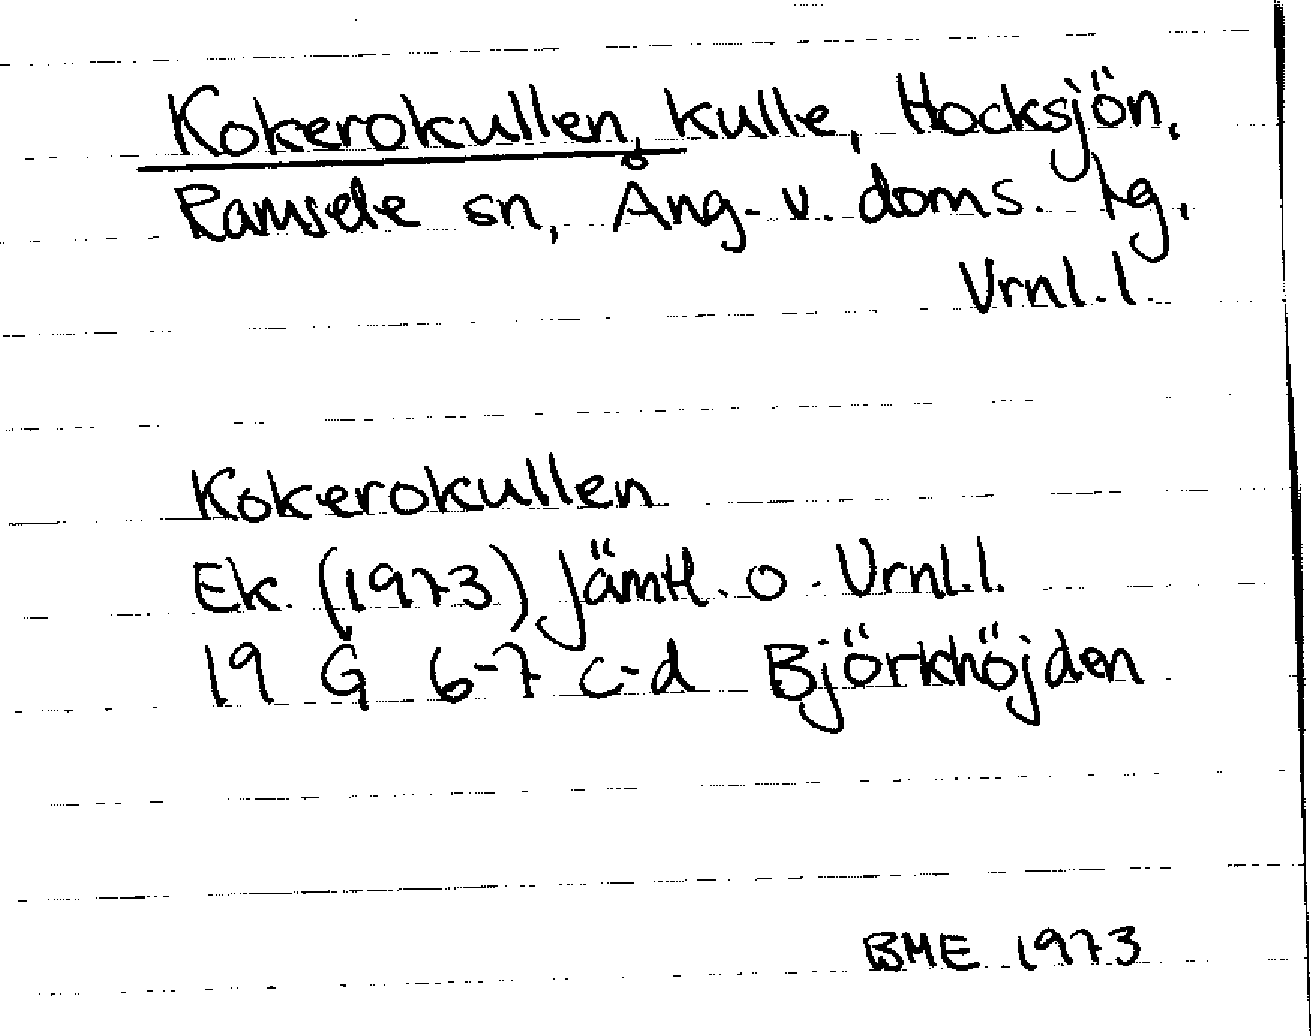 Kokerokullen, kulle, Hocksjön,
Ramsele sn, Ång. v. doms. tg,
Vrnl. l.
Kokerokullen
Ek. (1973) Jämtl. o. Vrnl. l.
19 G 6-7 c-d Björkhöjden
BME 1973